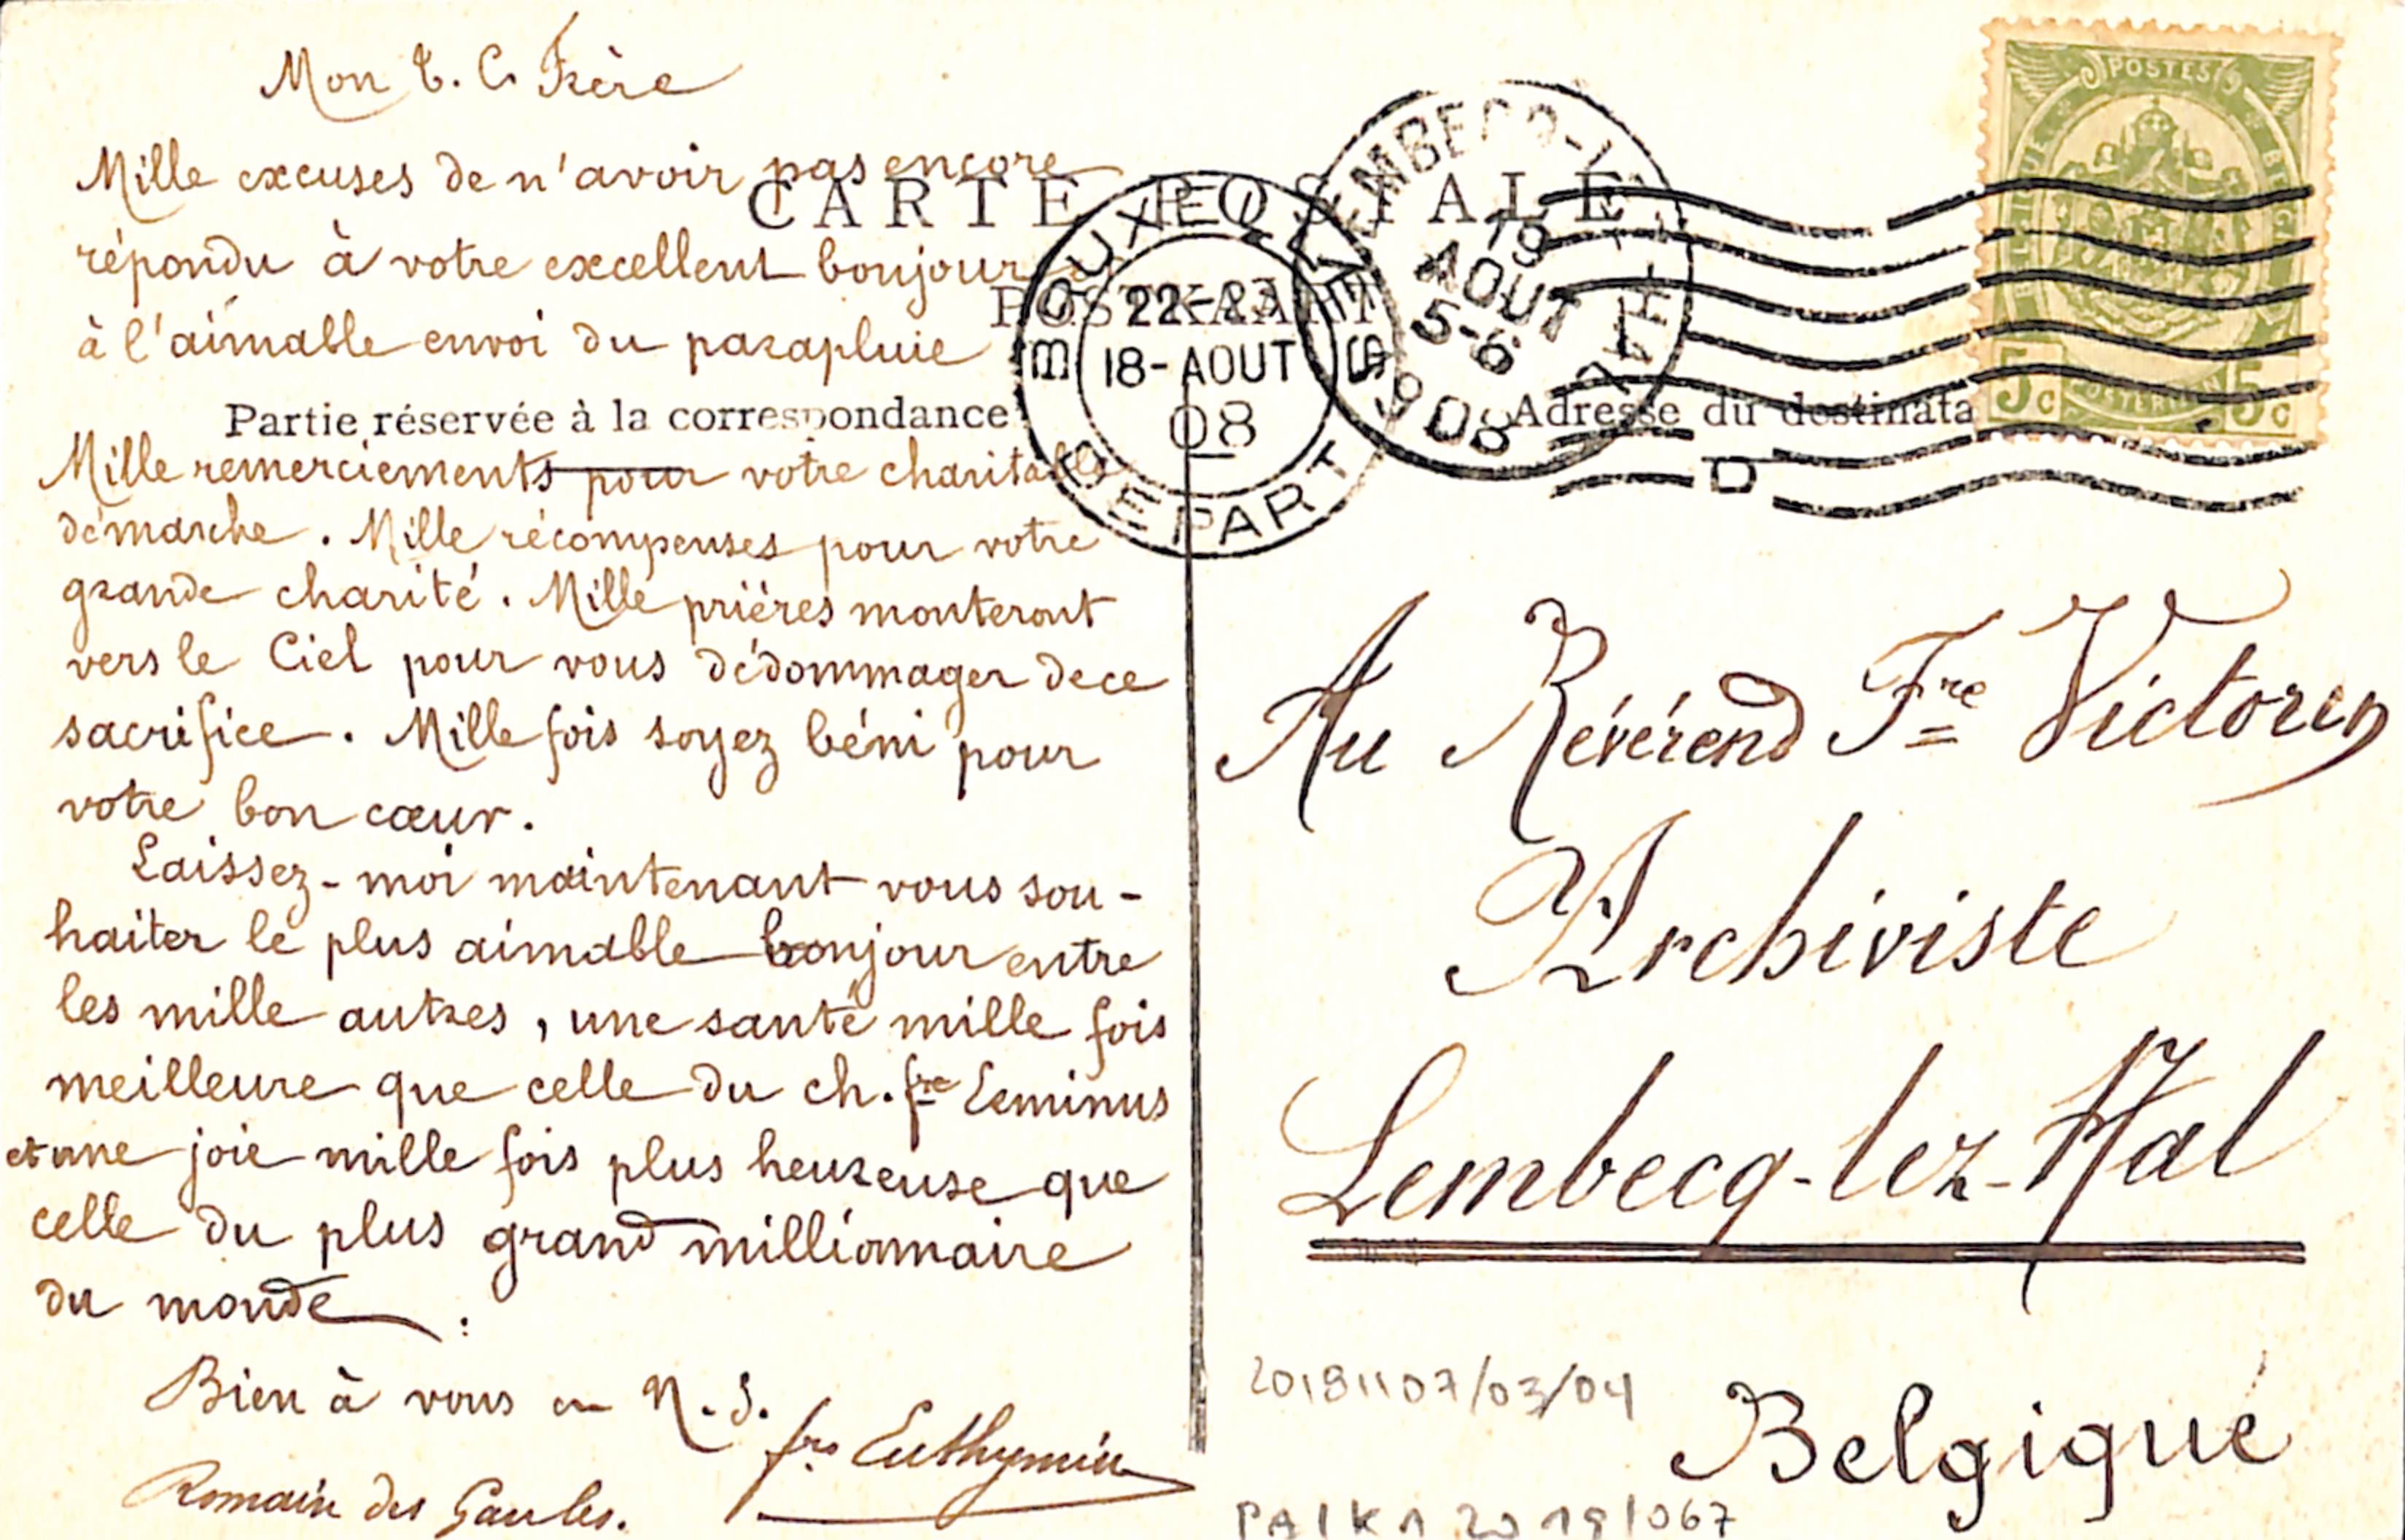 Mon T. C. Frère
Mille excuses de n'avoir pas encore
répondu à votre excellent bonjour
à l'aimable envoi du parapluie
Mille remerciements pour votre charitable
démarche. Mille récompenses pour votre
grande charité. Mille prières monteront
vers le Ciel pour vous dédommager de ce
sacrifice. Mille fois soyez béni pour
votre bon cœur.
Laissez-moi maintenant vous sou-
haiter le plus aimable bonjour entre
les mille autres, une santé mille fois
meilleure que celle du ch. fre Leminus
et une joie mille fois plus heureuse que
celle du plus grand millionnaire
du monde.
Bien à vous en N. S.
fre Euthymin
Romain des Gaules.
CARTE POSTALE
POSTKAART
Partie réservée à la correspondance
Adresse du destinata
BRUXELLES
22-23
18-AOUT
08
DEPART
LEMBECQ-LEZ-HAL
19
AOUT
5-6
1908
D
POSTES
5c
5c
Au Révérend Fre Victorin
Archiviste
Lembecq-lez-Hal
Belgique
20181107/03/04
PAIKA 2019/067